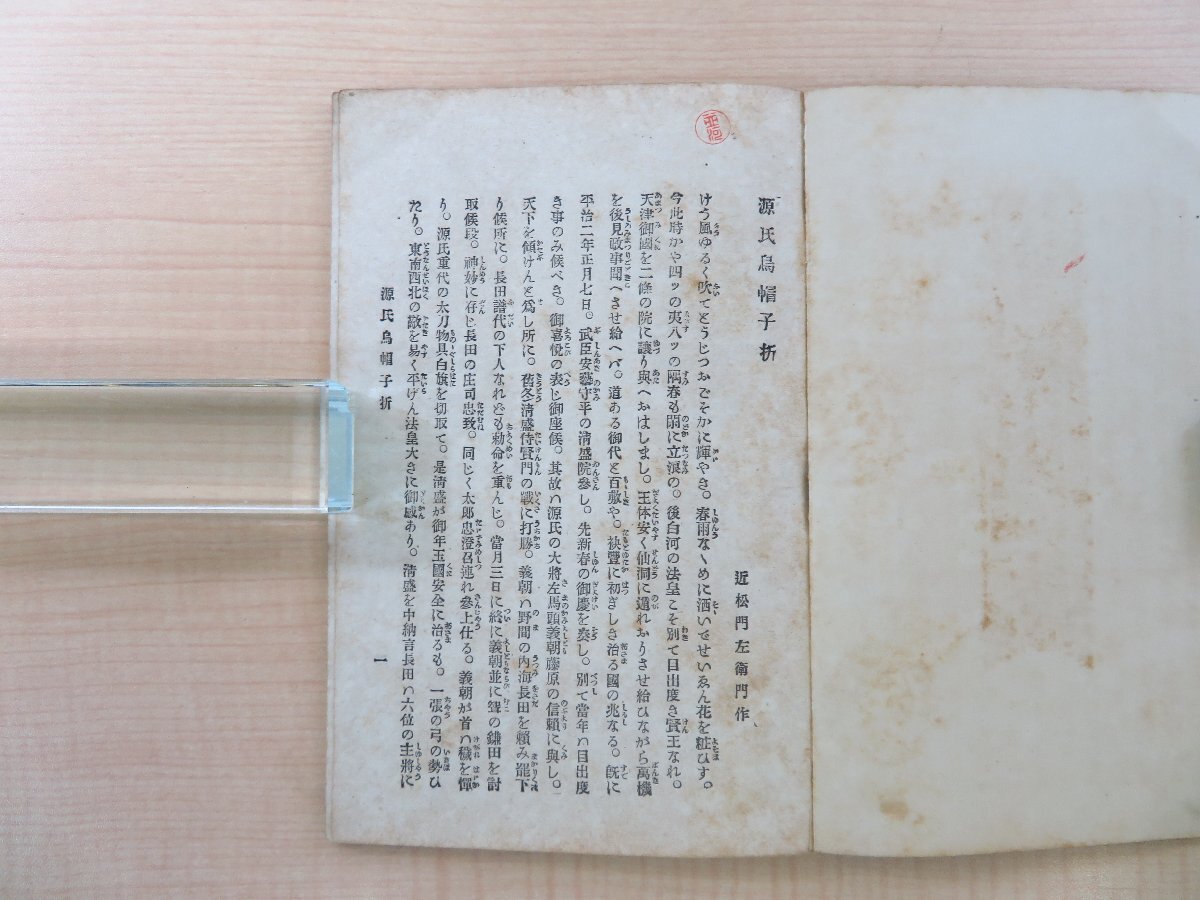 源氏烏帽子折
近松門左衛門作
けう風ゆるく吹てとうじつかごそかに暉やき。春雨なゝめに洒いでせいゑん花を粧ひす。
今此時かや四ッの夷八ッの隅春も閑に立浪の。後白河の法皇こそ別て目出度き賢王なれ。
天津御國を二條の院に讓り與へおはしまし。王体安く仙洞に遺れおりさせ給ひながら萬機
を後見政事聞へさせ給へバ。道ある御代と百敷や。袂豐に初ぎしき治る國の兆なる。既に
平治二年正月七日。武臣安藝守平の清盛院參し。先新春の御慶を奏し。別て當年ハ目出度
き事のみ候べき。御喜悅の表じ御座候。其故ハ源氏の大將左馬頭義朝藤原の信賴に與し。
天下を傾けんと爲し所に。舊冬清盛待賢門の戰に打勝。義朝ハ野間の内海長田を賴み罷下
り候所に。長田譜代の下人なれども勅命を重んじ。當月三日に終に義朝並に聟の鎌田を討
取候段。神妙に存じ長田の庄司忠致。同じく太郎忠澄召連れ參上仕る。義朝が首ハ穢を憚
り。源氏重代の太刀物具白旗を切取て。是清盛が御年玉國安全に治るも。一張の弓の勢ひ
たり。東南西北の敵を易く平げん法皇大きに御感あり。清盛を中納言長田ハ六位の主將に
源氏烏帽子折
一